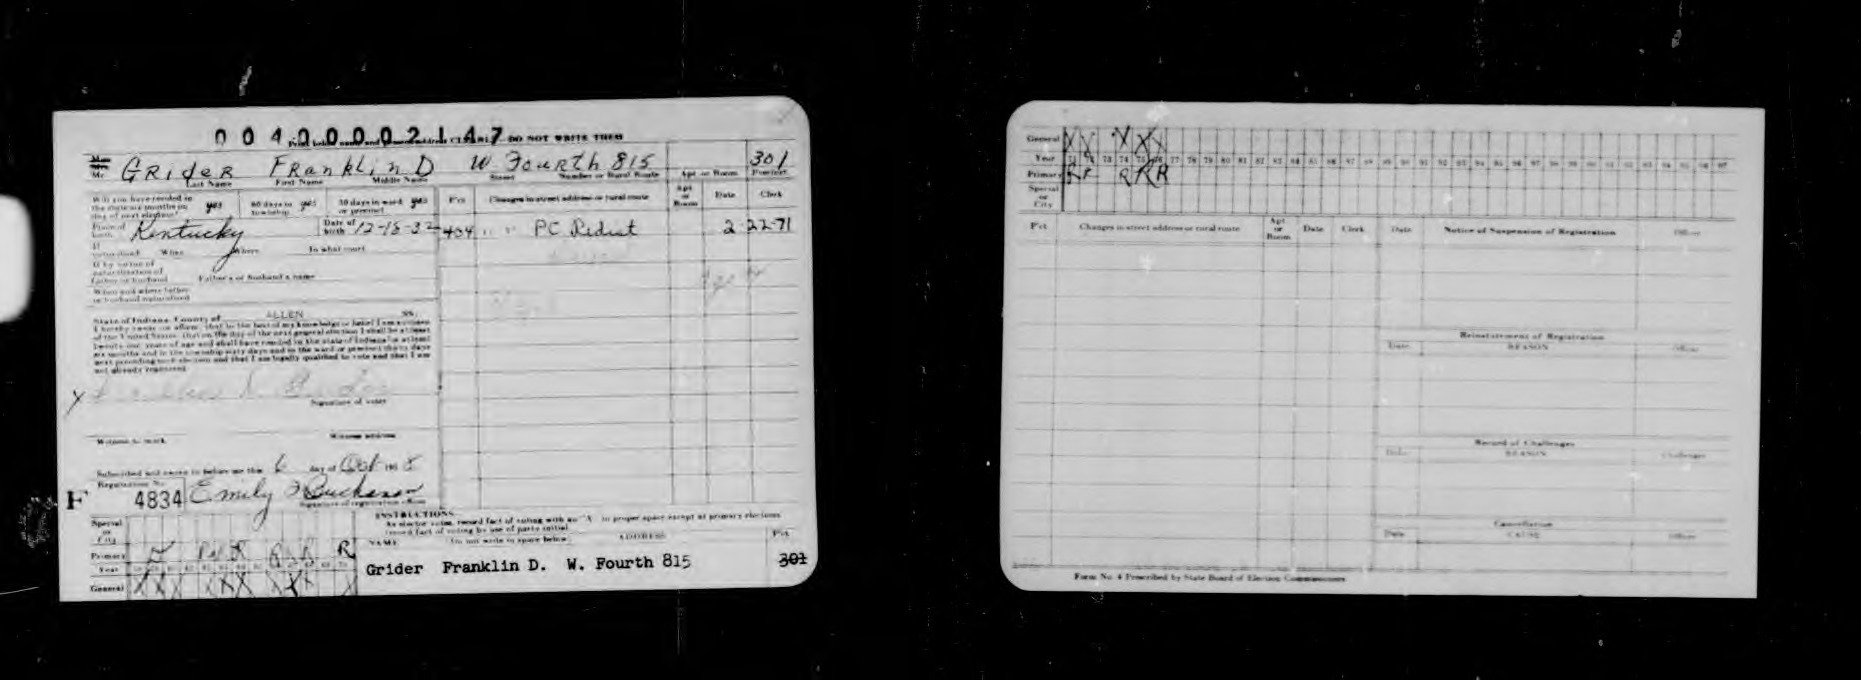 00400002147
DO NOT WRITE THEM
Grider Franklin D W Fourth 815 301
Last Name First Name Middle Name Street Number or Rural Route Apt or Room Precinct
Will you have resided in the state six months on day of next election? yes 60 days in township yes 30 days in ward or precinct yes
P'ct Changes in street address or rural route Apt or Room Date Clerk
Place of birth Kentucky Date of birth 12-15-32
404 " " PC Redist 2-22-71
If naturalized When Where In what court
If by virtue of naturalization of father or husband Father's or husband's name
When and where father or husband naturalized
State of Indiana, County of ALLEN SS:
I hereby swear or affirm, that to the best of my knowledge or belief I am a citizen
of the United States, that on the day of the next general election I shall be at least
twenty one years of age and shall have resided in the state of Indiana for at least
six months and in the township sixty days and in the ward or precinct thirty days
next preceding such election and that I am legally qualified to vote and that I am
not already registered.
X Franklin D. Grider
Signature of voter
Witness to mark Witness address
Subscribed and sworn to before me this 6 day of Oct 195
Registration No.
F 4834 Emily Buchanan
Signature of registration officer
INSTRUCTIONS
As elector votes, record fact of voting with an "X" in proper space except at primary elections
record fact of voting by use of party initial.
NAME Do not write in space below ADDRESS P'ct
Grider Franklin D. W. Fourth 815 301
Special or City
Primary R R R
Year
General X X X X X X X
General X X X X X
Year 71 72 73 74 75 76 77 78 79 80 81 82 83 84 85 86 87 88 89 90 91 92 93 94 95 96 97
Primary R R R R R
Special or City
P'ct Changes in street address or rural route Apt or Room Date Clerk Date Notice of Suspension of Registration Officer
Reinstatement of Registration
Date REASON Officer
Record of Challenges
Date REASON Challenger
Cancellation
Date CAUSE Officer
Form No. 4 Prescribed by State Board of Election Commissioners